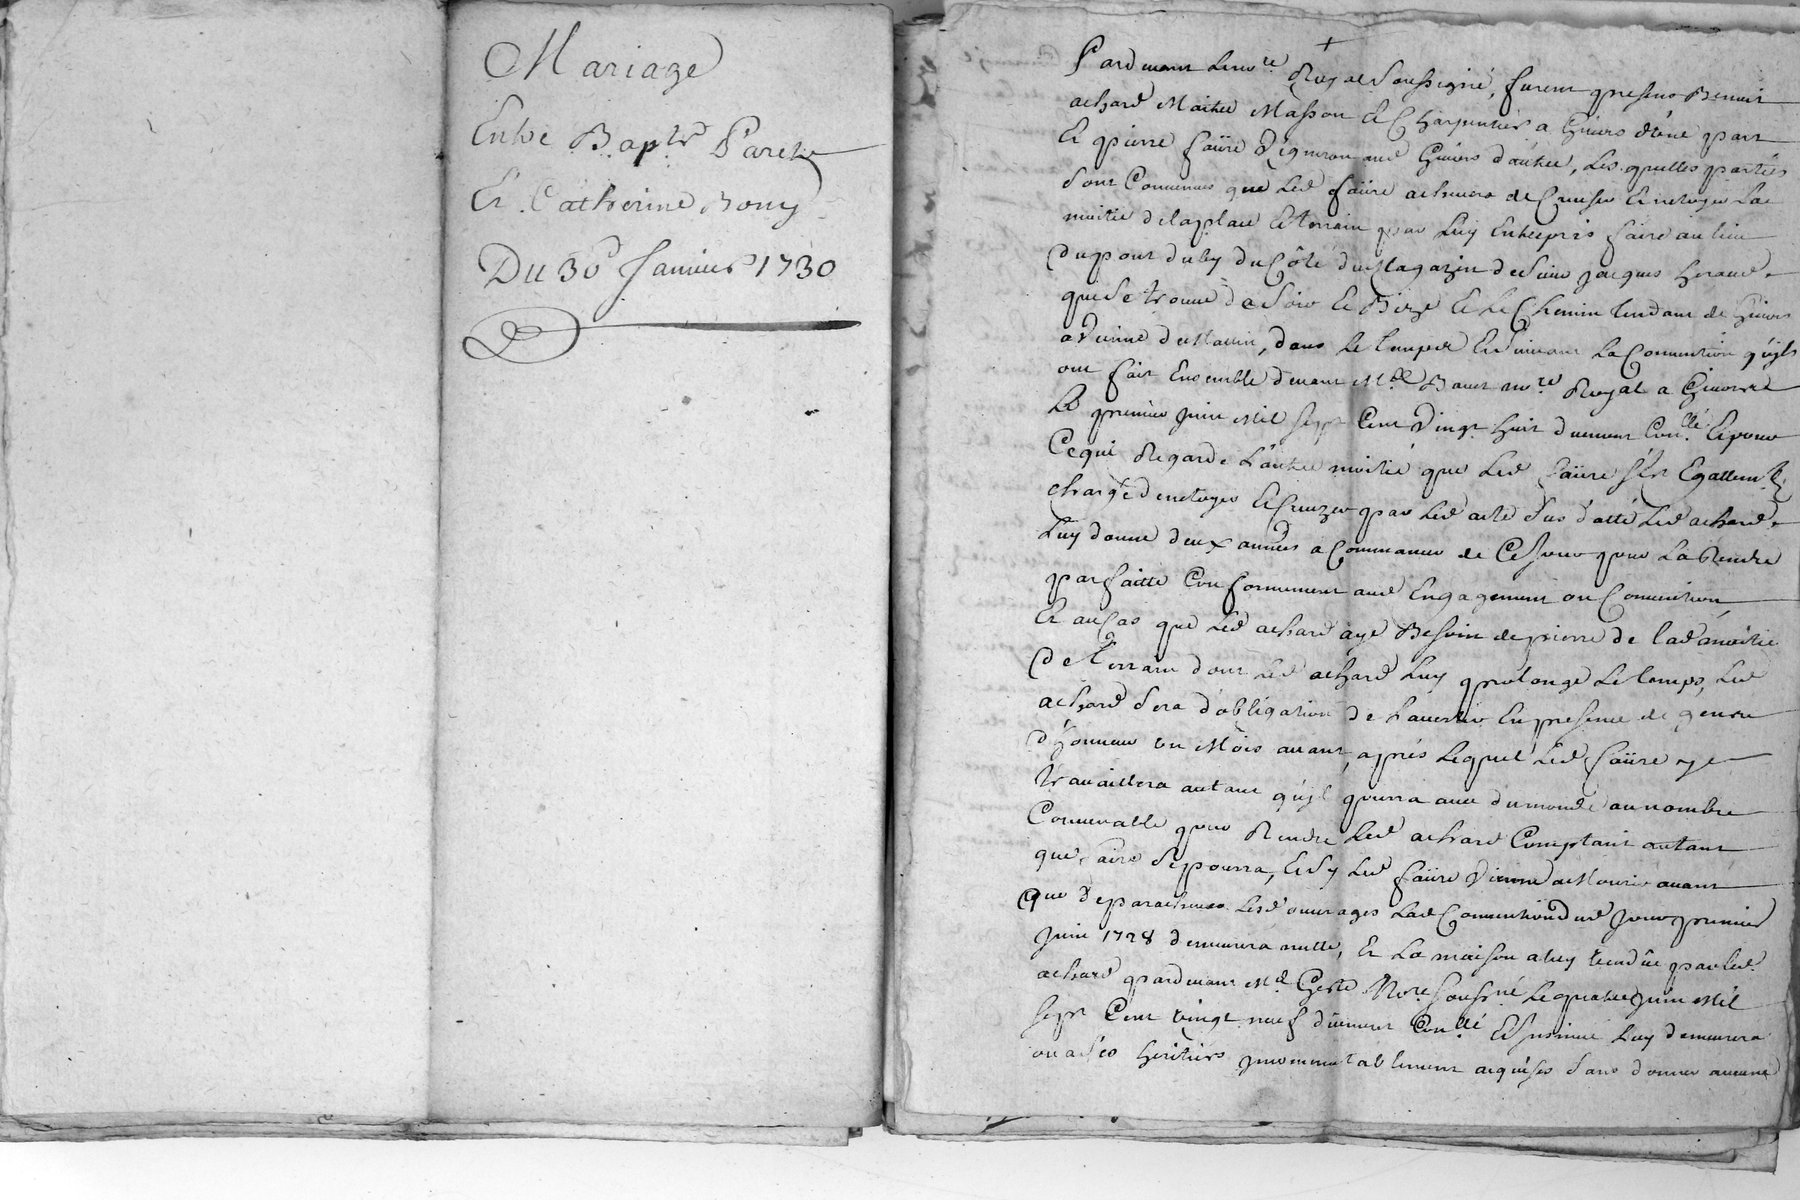 Mariage
Entre Bapte Paret
Et Catherine Bony
Du 30e Janvier 1730
Pardevant le nore Royal soussigné, furent presens Benoit
achard Maitre Masson et Charpentier a Givors d'une part
Et pierre faüre Vigneron aud Givors d'autre, Les quelles parties
sont Convenües que Led faüre achevera de Creuser et netoyer La
moitié de la place et terrain par Luy Entrepris faire au lieu
du pont du Coté du Magazin de Sieur Jacques
qui se trouve de soir et Bize et le Chemin tendant de Givors
a Vienne de Matin, dans le temps et suivant La Convention qu'ils
ont fait Ensemble devant Me nore Royal a Givors
Le premier Juin Mil sept Cent Vingt huit duement Conllé Et pour
Ce qui Regarde L'autre moitié que Led faüre s'est Egallemt
chargé de netoyer et Creuzer par Led acte sus d'atté Led achard
Luy donne deux années a Commancer de Ce Jour pour La Rendre
parfaitte Conformement aud Engagement ou Convention
Et au Cas que Led achard aye Besoin de pierre de lad moitié
de terrain dont Led achard Luy prolonge Le temps, Led
achard sera d'obligation de l'avertir En presence de gens
d'honneur un Mois avant, après Lequel Led faüre y
travaillera autant qu'jl pourra avec du monde au nombre
Convenable pour Rendre Led achard Comptant autant
que faire se pourra, Et sy Led faüre Vienne a Mourir avant
que de parachever Lesd ouvrages Lad Convention dud Jour premier
Juin 1728 demeurera nulle, Et La maison a luy vendüe par led
achard pardevant Me Nore soussigné le quatre Juin Mil
sept Cent vingt neuf düement Conllé Et Luy demeurera
ou a ses heritiers jncommutablement acquise sans donner aucune